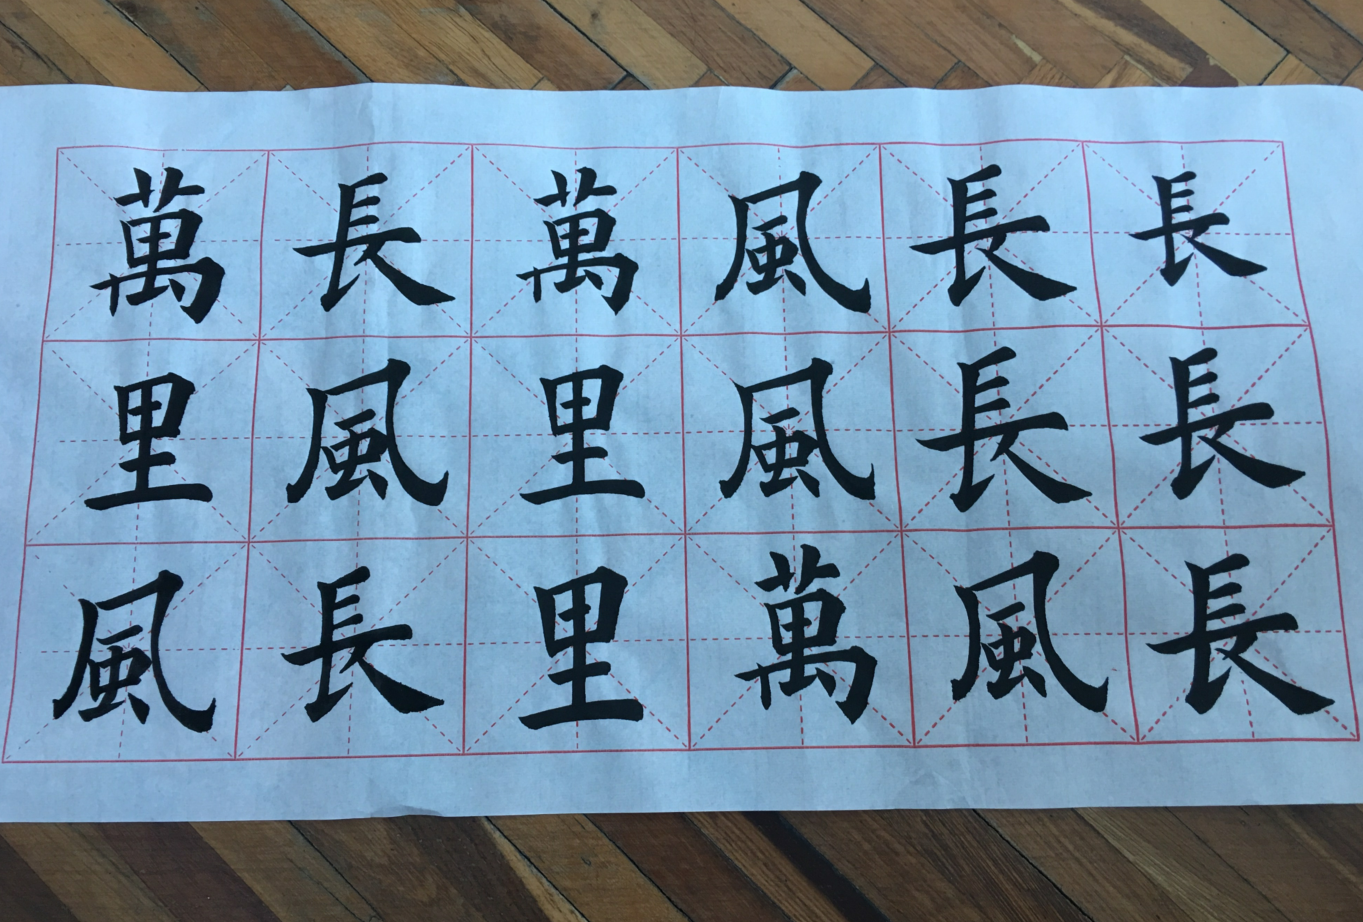 長長長
長長風
風風萬
萬里里
長風長
萬里風